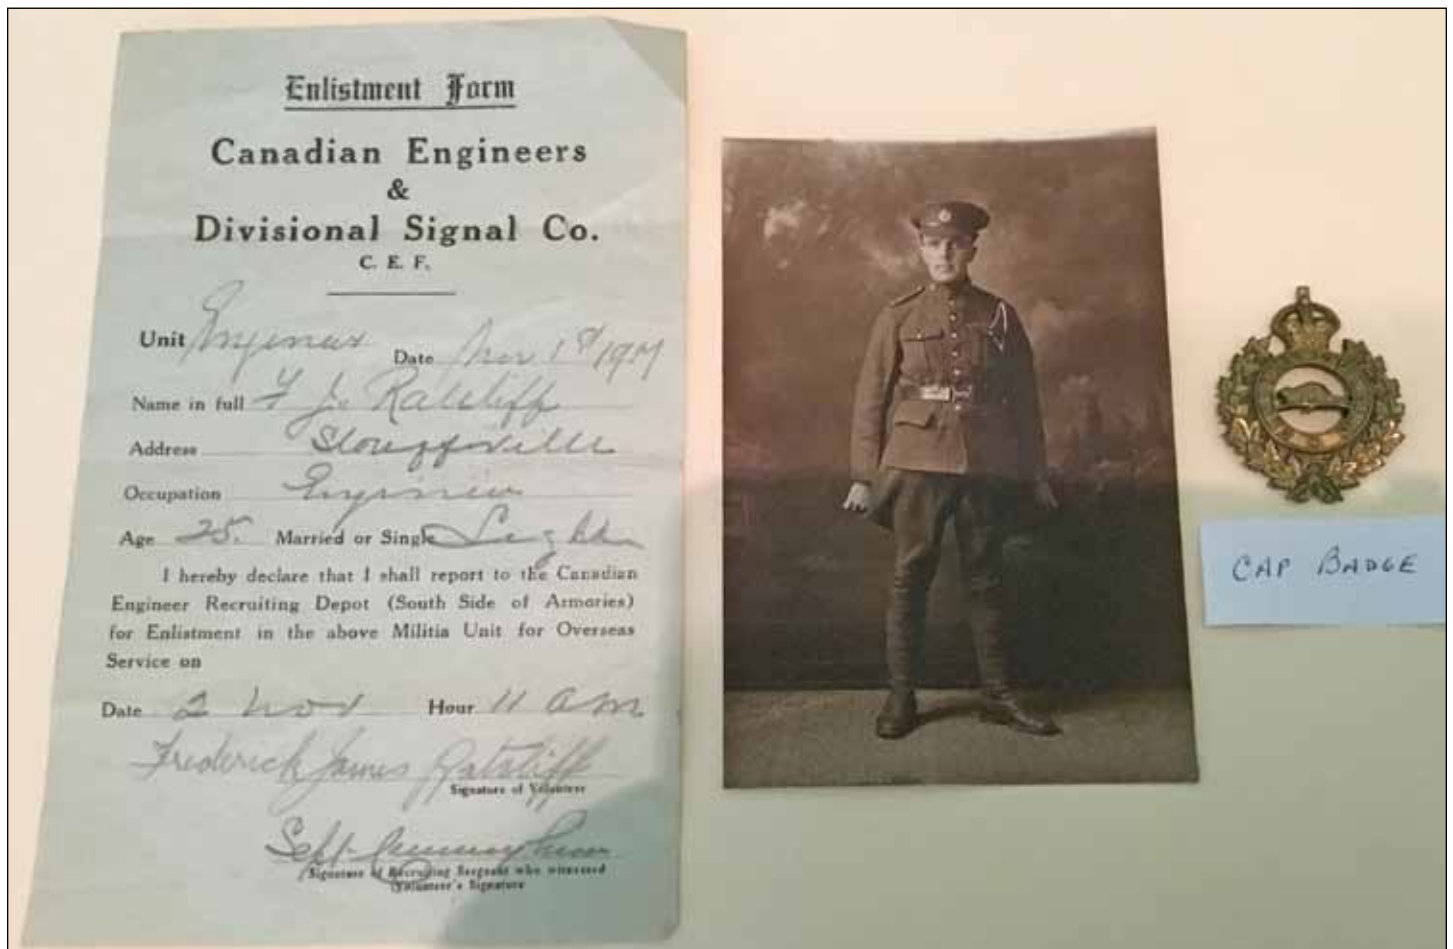 Enlistment Form
Canadian Engineers
&
Divisional Signal Co.
C. E. F.
Unit Engineers Date Nov 1st 1917
Name in full F J. Ratcliff
Address Stouffville
Occupation Engineer
Age 25. Married or Single Single
I hereby declare that I shall report to the Canadian
Engineer Recruiting Depot (South Side of Armories)
for Enlistment in the above Militia Unit for Overseas
Service on
Date 2 Nov Hour 11 am
Frederick James Ratcliff
Signature of Volunteer
Signature of Recruiting Sergeant who witnessed
Volunteer's Signature
CAP BADGE